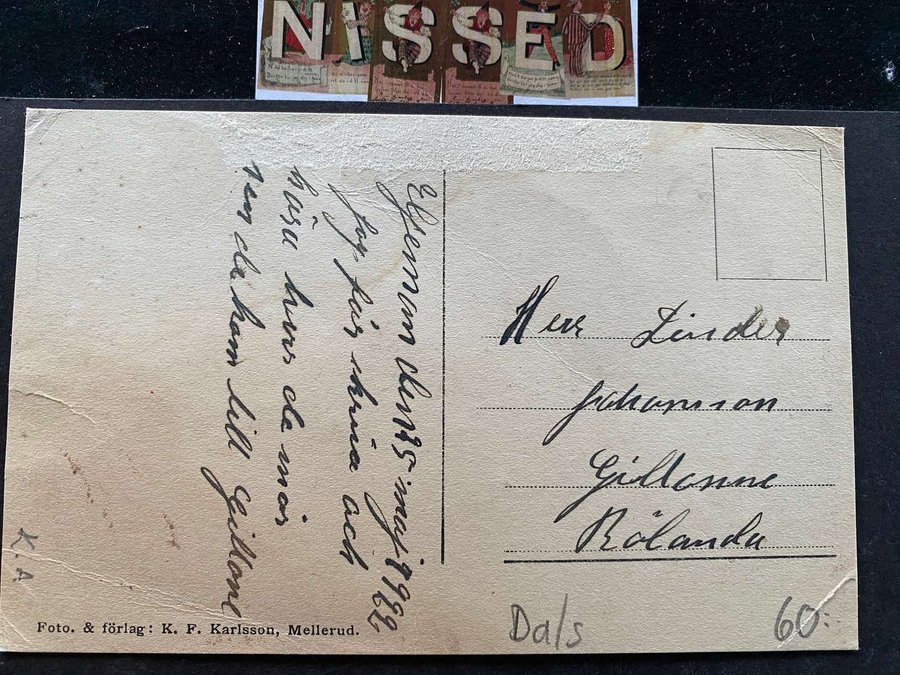 NISSED
den 25 maj 1922
får skria och
höra hur de mår
sen de kom till Gillone
Herr Linder
Johansson
Gillanne
Rölanda
K. A.
Foto. & förlag: K. F. Karlsson, Mellerud.
Dals
60:-